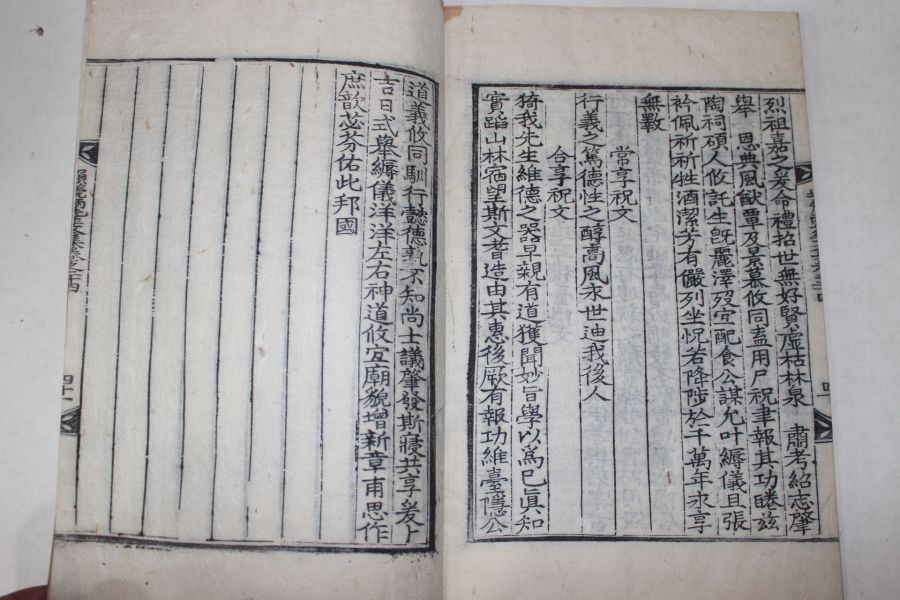 烈祖嘉之爰命禮招世無好賢虛枯林泉 肅考紹志肇
舉 恩典風猷覃及景慕攸同盍用尸祝聿報其功睠玆
陶祠碩人攸託生旣麗澤歿宜配食公謀允叶縟儀且張
衿佩祈祈牲酒潔芳有儼列坐怳若降陟於千萬年永享
無斁
常享祝文
行義之篤德性之醇高風永世迪我後人
合享祝文
猗我先生維德之器早親有道獲聞妙旨學以爲己眞知
實蹈山林宿望斯文昔造由其惠後厥有報功維臺隱公
道義攸同馴行懿德孰不知尚士議肇發斯寢共享爰卜
吉日式擧縟儀洋洋左右神道攸宜廟貌增新章甫思作
庶歆苾芬佑此邦國